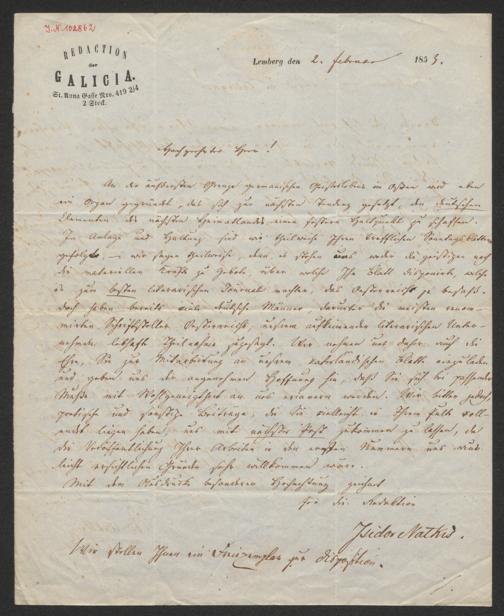 I.N. 102862
REDACTION
der
GALICIA.
St. Anna Gasse Nro. 419 2/4
2 Stock.
Lemberg den 2. Februar 1853.
Hochgeehrter Herr!
An der äußersten Grenze germanischen Geisteslebens im Osten wird eben
ein Organ gegründet, das sich zur nächsten Tendenz gesetzt, den deutschen
Elementen des nächsten Heimatlandes einen festern Haltpunkt zu schaffen.
In Anlage und Haltung sind wir theilweise Ihrem trefflichen Sonntagsblatte
gefolgt, – wir sagen theilweise, denn es stehen uns weder die geistigen noch
die materiellen Kräfte zu Gebote, über welche Ihr Blatt disponirt, welche
es zum besten literarischen Journal machten, das Oesterreich je besaß.
Doch haben bereits viele deutsche Männer darunter die meisten renom-
mirten Schriftsteller Oesterreichs, unserem aufkeimenden literarischen Unter-
nehmen lebhafte Theilnahme zugesagt. Wir nehmen uns daher auch die
Ehre, Sie zur Mitarbeitung an unserem vaterländischen Blatte einzuladen
und geben uns der angenehmen Hoffnung hin, daß Sie sich bei passender
Muße mit Wohlgeneigtheit an uns erinnern werden. Wir bitten jedoch
poetische und sonstige Beiträge, die Sie vielleicht in Ihrem Pulte voll-
endet liegen haben, uns mit nächster Post zukommen zu lassen, da
die Veröffentlichung Ihrer Arbeiten in den ersten Nummern uns aus
leicht ersichtlichen Gründen sehr willkommen wäre.
Mit dem Ausdruck besonderer Hochachtung zeichnet
für die Redaktion
Isidor Nathis.
Wir stellen Ihnen ein Freiexemplar zur Disposition.